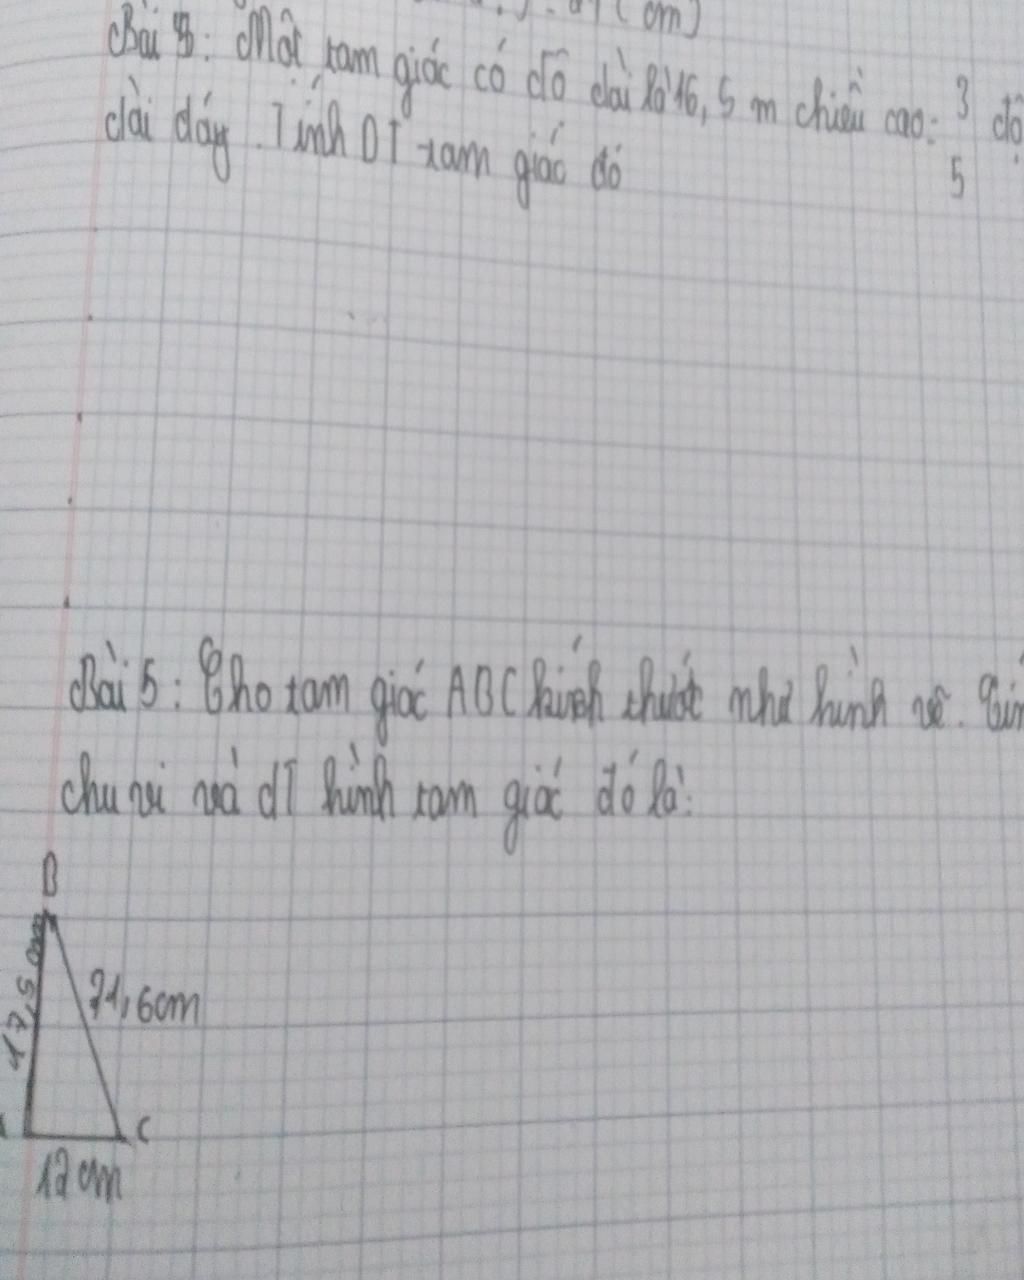 (cm)
Bài 3: Một tam giác có độ dài là 16,5 m chiều cao: 3 độ
5
dài đáy. Tính DT tam giác đó
Bài 5: Cho tam giác ABC kính thước như hình vẽ. Tín
chu vi và dT hình tam giác đó là:
B
21,6cm
C
12 cm